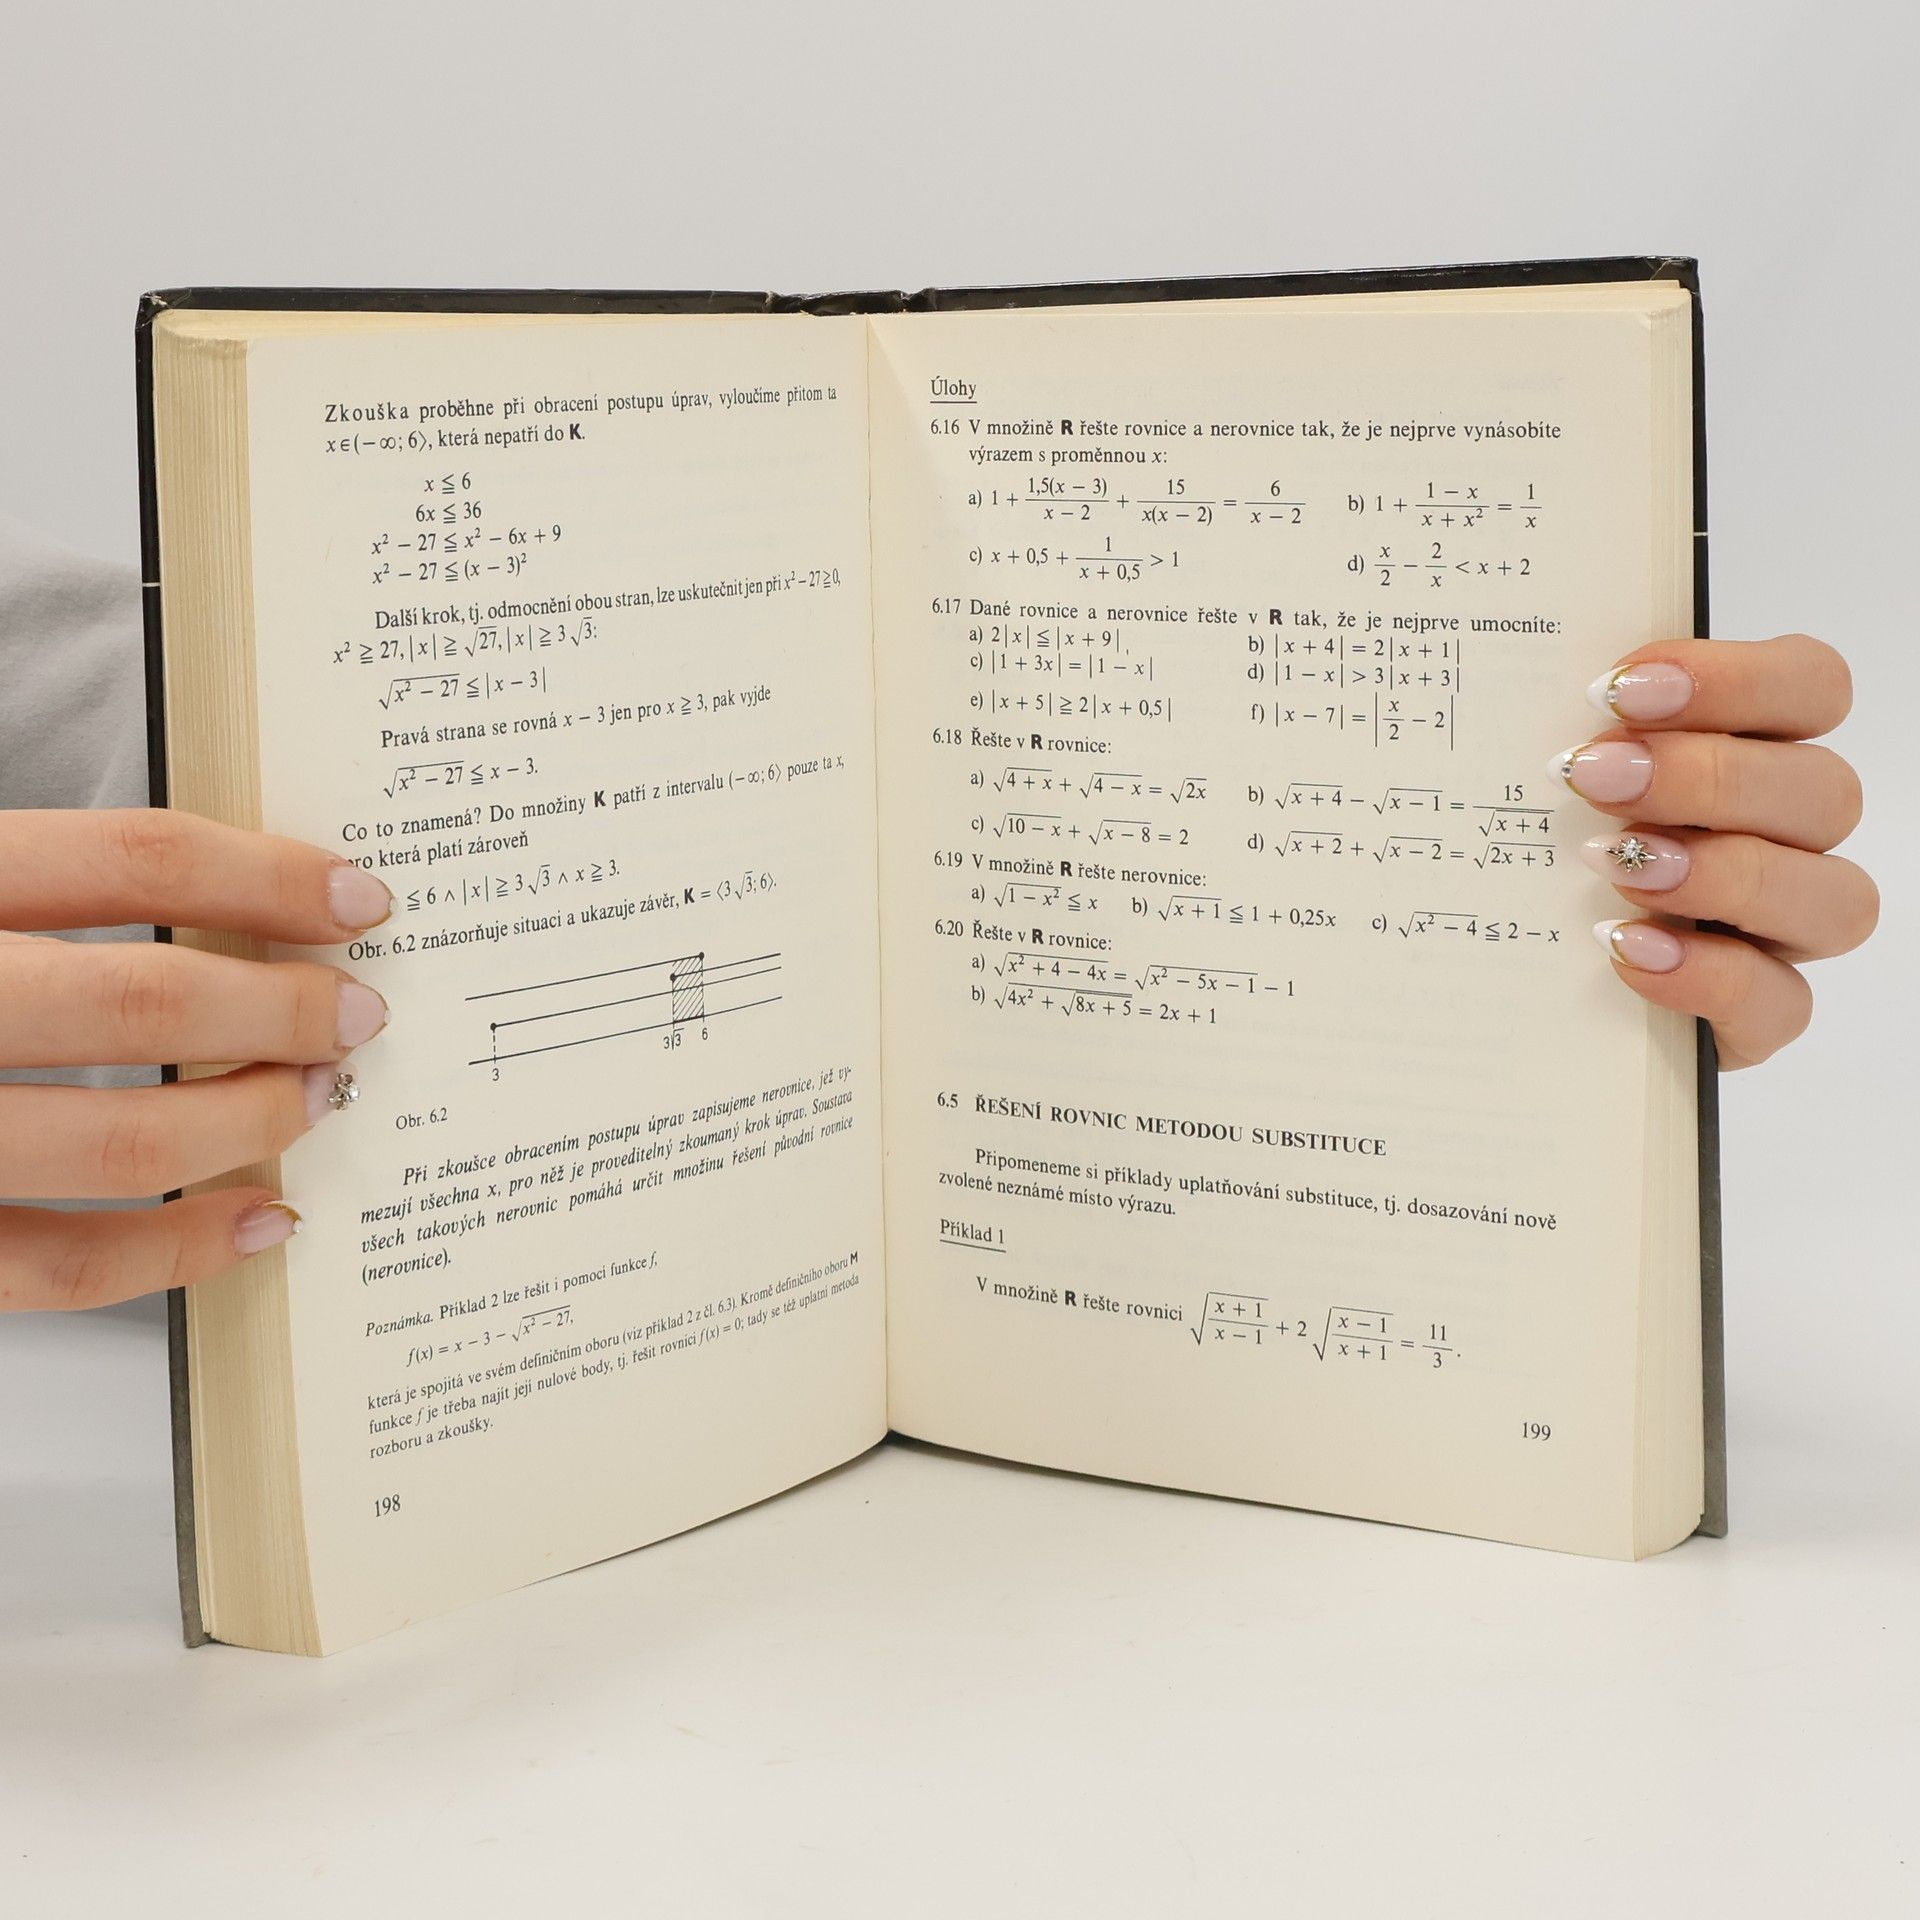 Zkouška proběhne při obracení postupu úprav, vyloučíme přitom ta
x∈(−∞; 6⟩, která nepatří do K.
x ≦ 6
6x ≦ 36
x² − 27 ≦ x² − 6x + 9
x² − 27 ≦ (x − 3)²
Další krok, tj. odmocnění obou stran, lze uskutečnit jen při x² − 27 ≧ 0,
x² ≧ 27, |x| ≧ √27, |x| ≧ 3√3:
√(x² − 27) ≦ |x − 3|
Pravá strana se rovná x − 3 jen pro x ≧ 3, pak vyjde
√(x² − 27) ≦ x − 3.
Co to znamená? Do množiny K patří z intervalu (−∞; 6⟩ pouze ta x,
která platí zároveň
≦ 6 ∧ |x| ≧ 3√3 ∧ x ≧ 3.
Obr. 6.2 znázorňuje situaci a ukazuje závěr, K = ⟨3√3; 6⟩.
3 3√3 6
Obr. 6.2
Při zkoušce obracením postupu úprav zapisujeme nerovnice, jež vy-
mezují všechna x, pro něž je proveditelný zkoumaný krok úprav. Soustava
všech takových nerovnic pomáhá určit množinu řešení původní rovnice
(nerovnice).
Poznámka. Příklad 2 lze řešit i pomocí funkce f,
f(x) = x − 3 − √(x² − 27),
která je spojitá ve svém definičním oboru (viz příklad 2 z čl. 6.3). Kromě definičního oboru M
funkce f je třeba najít její nulové body, tj. řešit rovnici f(x) = 0; tady se též uplatní metoda
rozboru a zkoušky.
198
Úlohy
6.16 V množině R řešte rovnice a nerovnice tak, že je nejprve vynásobíte
výrazem s proměnnou x:
a) 1 + 1,5(x − 3)/(x − 2) + 15/(x(x − 2)) = 6/(x − 2) b) 1 + (1 − x)/(x + x²) = 1/x
c) x + 0,5 + 1/(x + 0,5) > 1 d) x/2 − 2/x < x + 2
6.17 Dané rovnice a nerovnice řešte v R tak, že je nejprve umocníte:
a) 2|x| ≦ |x + 9| b) |x + 4| = 2|x + 1|
c) |1 + 3x| = |1 − x| d) |1 − x| > 3|x + 3|
e) |x + 5| ≧ 2|x + 0,5| f) |x − 7| = |x/2 − 2|
6.18 Řešte v R rovnice:
a) √(4 + x) + √(4 − x) = √(2x) b) √(x + 4) − √(x − 1) = 15/√(x + 4)
c) √(10 − x) + √(x − 8) = 2 d) √(x + 2) + √(x − 2) = √(2x + 3)
6.19 V množině R řešte nerovnice:
a) √(1 − x²) ≦ x b) √(x + 1) ≦ 1 + 0,25x c) √(x² − 4) ≦ 2 − x
6.20 Řešte v R rovnice:
a) √(x² + 4 − 4x) = √(x² − 5x − 1) − 1
b) √(4x² + √(8x + 5)) = 2x + 1
6.5 ŘEŠENÍ ROVNIC METODOU SUBSTITUCE
Připomeneme si příklady uplatňování substituce, tj. dosazování nově
zvolené neznámé místo výrazu.
Příklad 1
V množině R řešte rovnici √((x + 1)/(x − 1)) + 2√((x − 1)/(x + 1)) = 11/3.
199